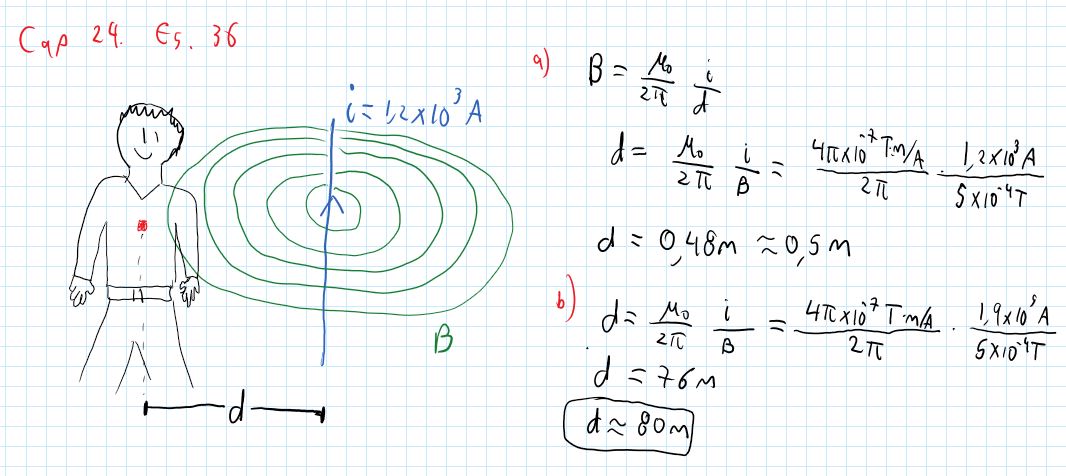 Cap 24. Es. 36
i = 1,2×10³ A
B
d
a)
B = μ₀/2π i/d
d = μ₀/2π i/B = 4π×10⁻⁷ T·m/A / 2π · 1,2×10³ A / 5×10⁻⁴ T
d = 0,48m ≈ 0,5 m
b)
d = μ₀/2π i/B = 4π×10⁻⁷ T·m/A / 2π · 1,9×10⁵ A / 5×10⁻⁴ T
d = 76 m
d ≈ 80 m